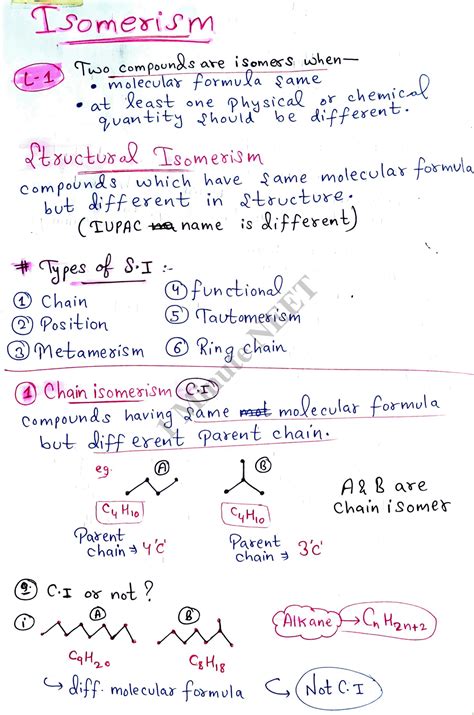 Isomerism
L-1 Two compounds are isomers when—
• molecular formula same
• at least one physical or chemical
quantity should be different.
Structural Isomerism
compounds which have same molecular formula
but different in structure.
(IUPAC name is different)
# Types of S.I :-
① Chain ④ functional
② Position ⑤ Tautomerism
③ Metamerism ⑥ Ring chain
① Chain isomerism (C.I)
compounds having same molecular formula
but different Parent chain.
eg. Ⓐ Ⓑ
C₄H₁₀ C₄H₁₀ A & B are
chain isomer
Parent Parent
chain ⇒ 4'c' chain ⇒ 3'c'
Q. C.I or not?
ⓘ Ⓐ Ⓑ Alkane → CₙH₂ₙ₊₂
C₉H₂₀ C₈H₁₈
↳ diff. molecular formula ↳ Not C.I
1 Minute NEET